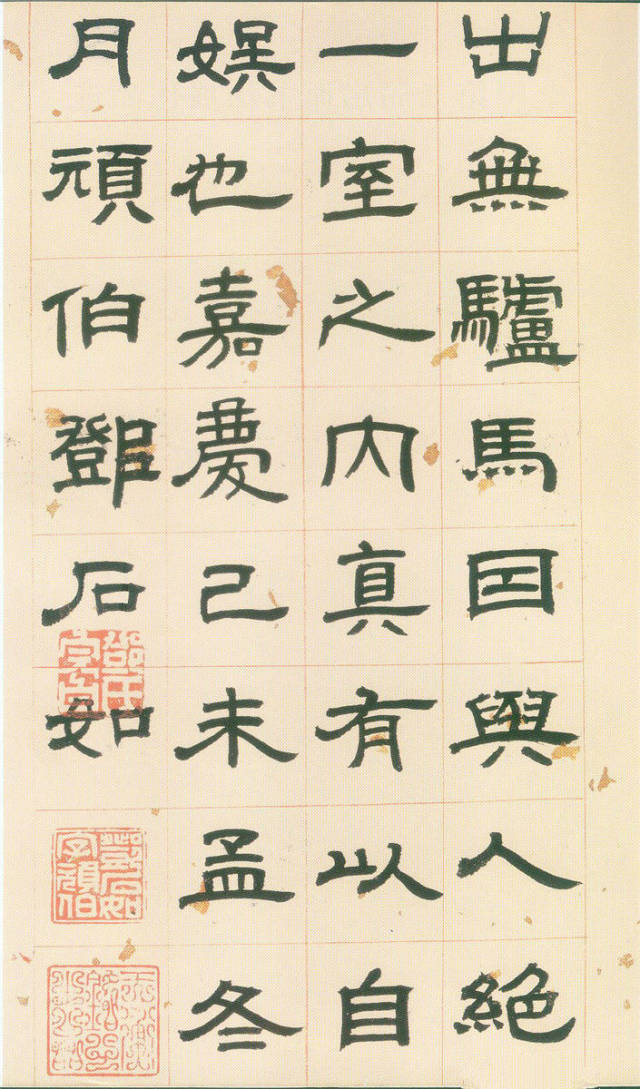 出無驢馬因與人絕
一室之内真有以自
娛也嘉慶己未孟冬
月頑伯鄧石如
鄧石如
字頑伯